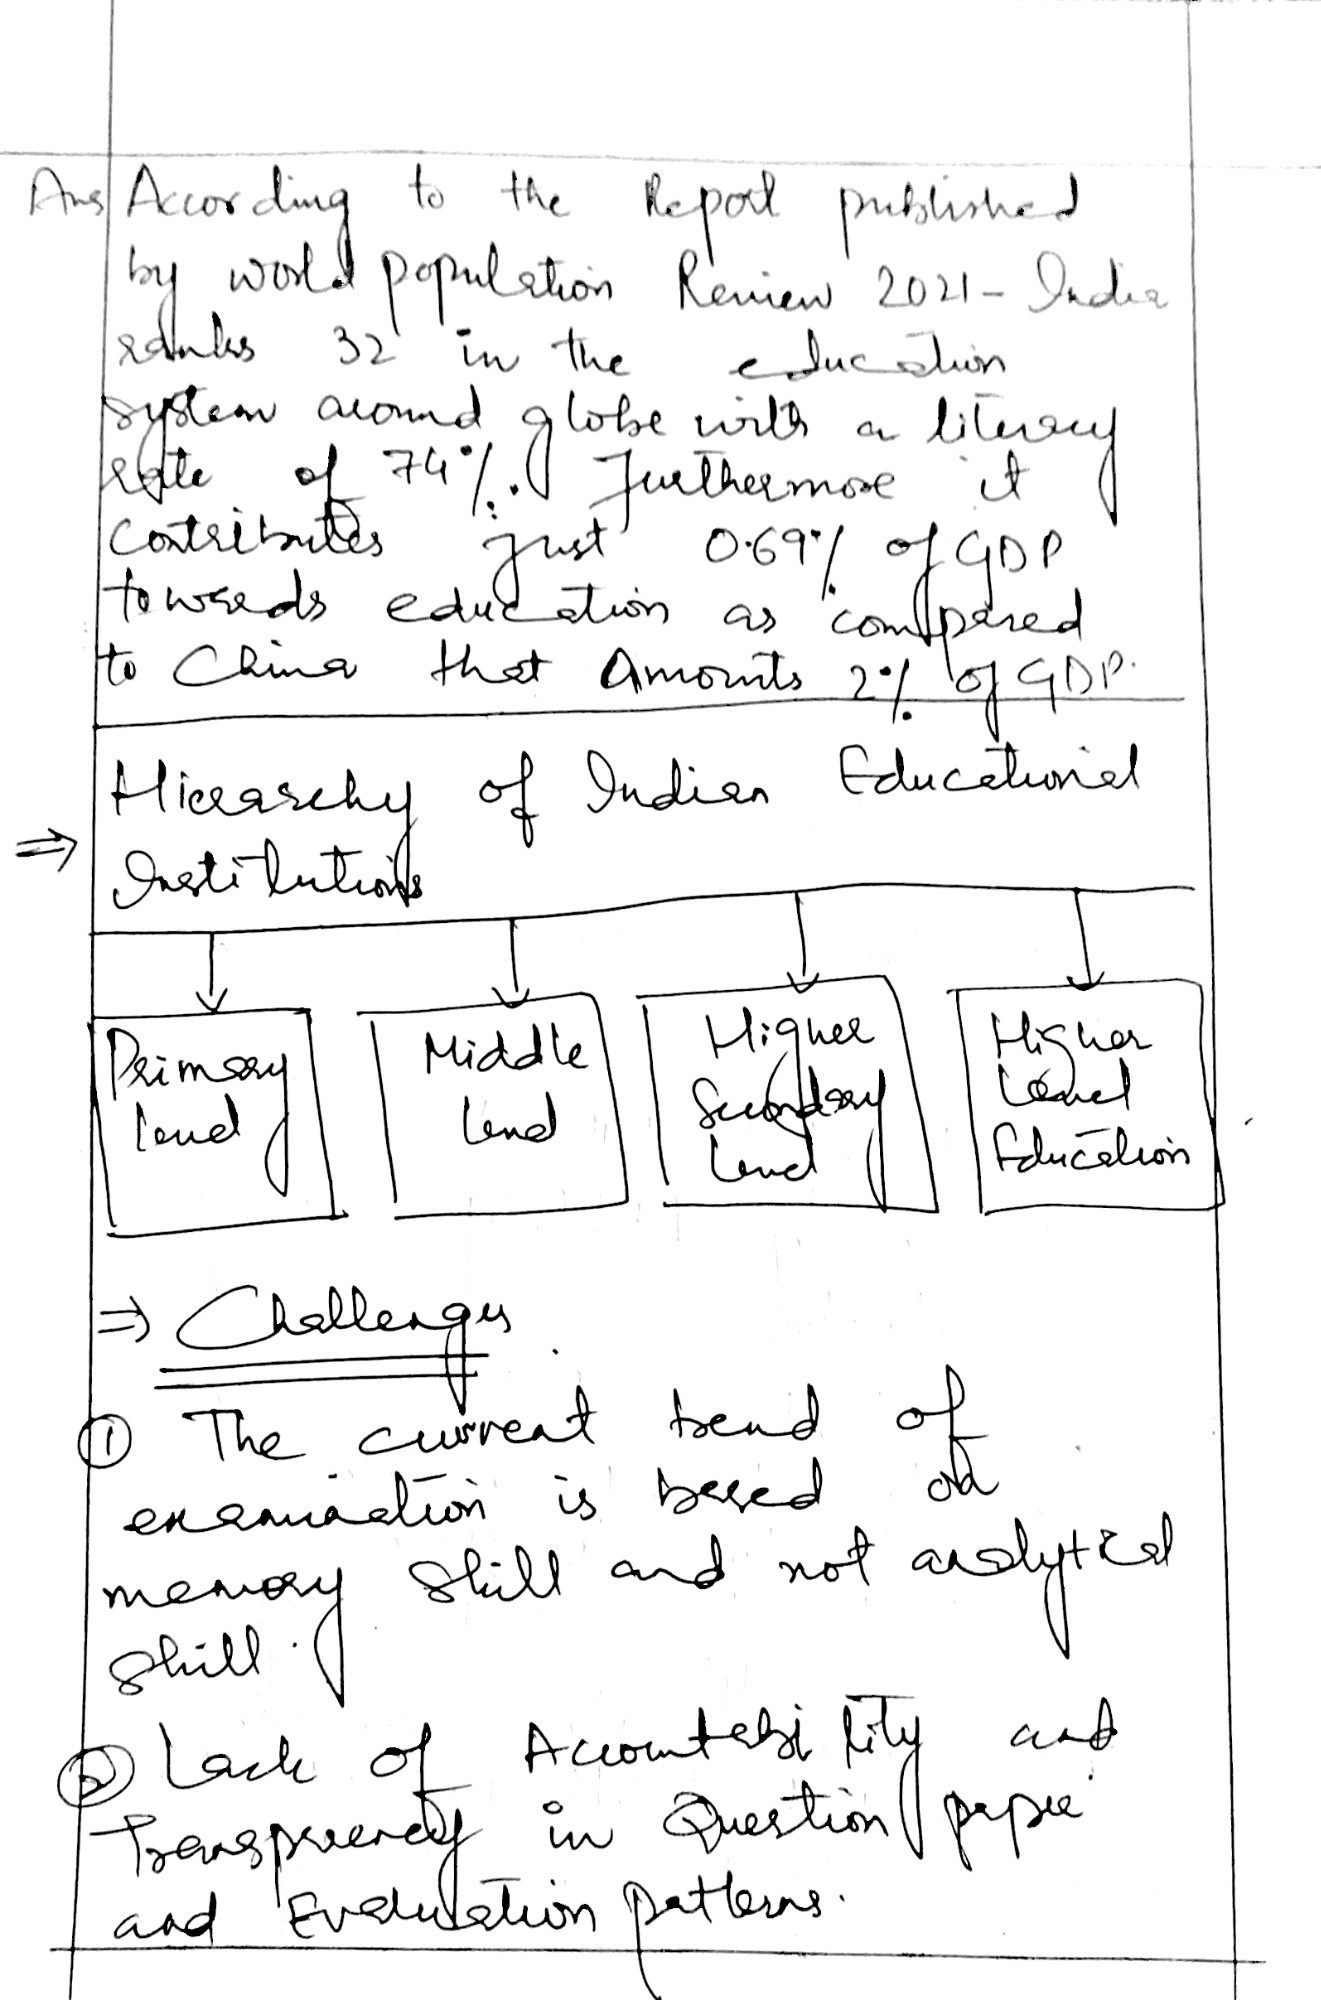 Ans According to the Report published
by world population Review 2021- India
ranks 32 in the education
system around globe with a literacy
rate of 74%. Furthermore it
contributes just 0.69% of GDP
towards education as compared
to China that Amounts 2% of GDP.
Hierarchy of Indian Educational
⇒ Institutions
Primary Level
Middle Level
Higher Secondary Level
Higher Level Education
⇒ Challenges
① The current trend of
examination is based on
memory skill and not analytical
skill.
② Lack of Accountability and
Transparency in Question paper
and Evaluation patterns.